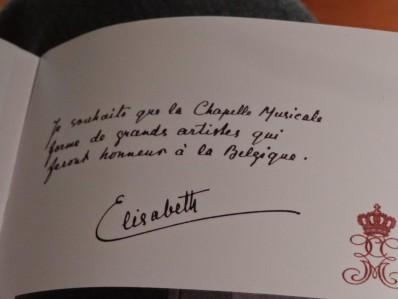 Je souhaite que la Chapelle Musicale
forme de grands artistes qui
feront honneur à la Belgique.
Elisabeth